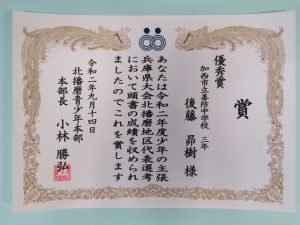 賞
優秀賞
加西市立善防中学校 三年
後藤 昴樹 様
あなたは令和二年度少年の主張
兵庫県大会北播磨地区代表選考
において頭書の成績を収められ
ましたのでこれを賞します
令和二年九月十四日
北播磨青少年本部
本部長 小林 勝弘